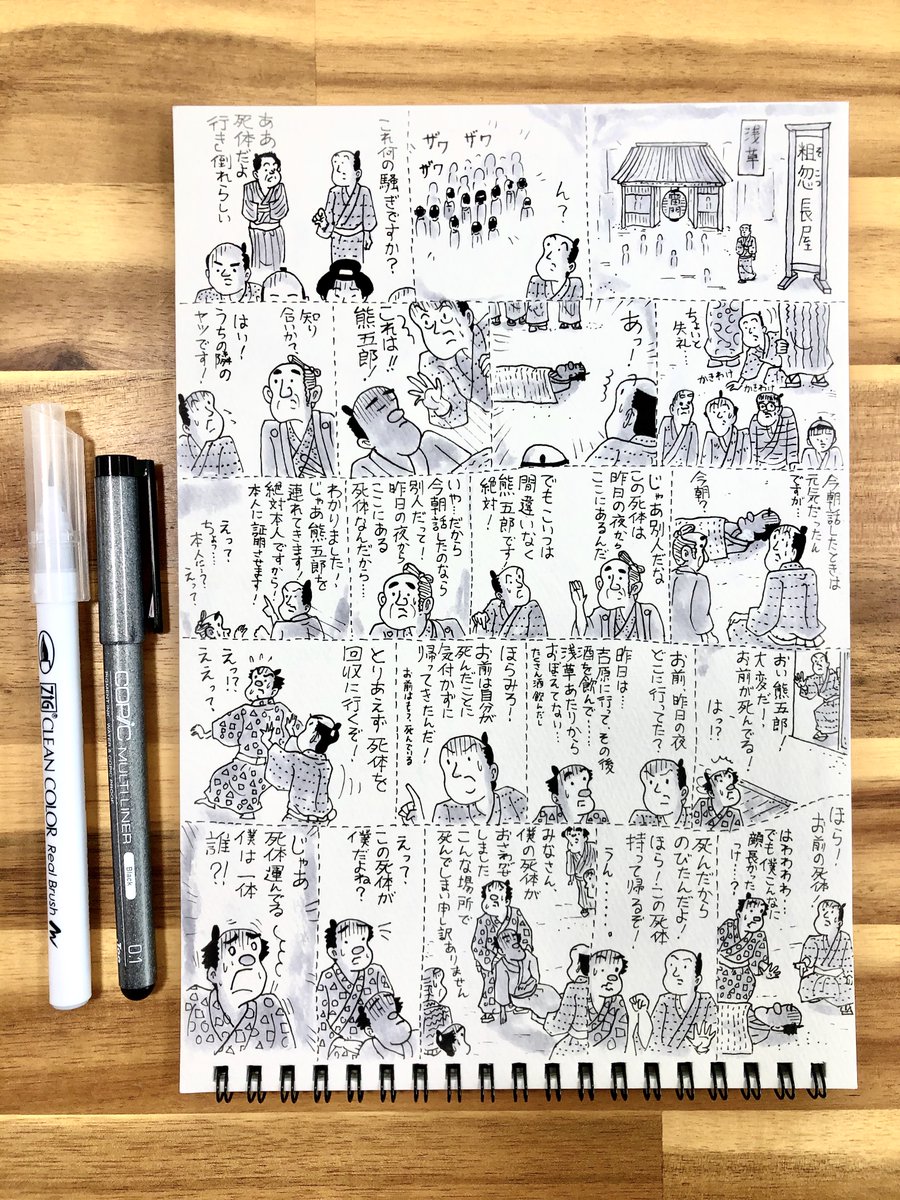 粗忽長屋
そこつ
浅草
雷門
ん?
ザワ
ザワ
ザワ
これ何の騒ぎですか?
ああ
死体だよ
行き倒れらしい
ちょいと
失礼…
かきわけ
かきわけ
あっ
これは!!
熊五郎!
知り
合いか?
はい!
うちの隣の
ヤツです!
今朝話したときは
元気だったん
ですが…
今朝?
じゃあ別人だな
この死体は
昨日の夜から
ここにあるんだ
でもこいつは
間違いなく
熊五郎です
絶対!
いや…だから
今朝話したのなら
別人だって!
昨日の夜から
ここにある
死体なんだから…
わかりました!
じゃあ熊五郎を
連れてきます!
絶対本人ですから!
本人に証明させます!
えって
ちょっ…
本人に!?
えって
おい熊五郎!
大変だ!
お前が死んでる!
はっ!?
お前昨日の夜
どこに行ってた?
昨日は…
吉原に行って、その後
酒を飲んで……
浅草あたりから
おぼえてない…
たくさん酒飲んだし
ほらみろ!
お前は自分が
死んだことに
気付かずに
帰ってきたんだ!
お前はもう、死んでいる
とりあえず死体を
回収に行くぞ!
えっ!?
ええって、
ほら!
お前の死体!
はわわわわ…
でも僕こんなに
顔長かった
っけ…?
死んだから
のびたんだよ!
ほら!この死体
持って帰るぞ!
うん.....
みなさん、
僕の死体が
おさわがせ
しました
こんな場所で
死んでしまい申し訳ありません
えって
この死体が
僕だよね?
じゃあ
死体運んでる
僕は一体
誰?!
ZIG CLEAN COLOR Real Brush
COPIC MULTILINER
Black
0.1